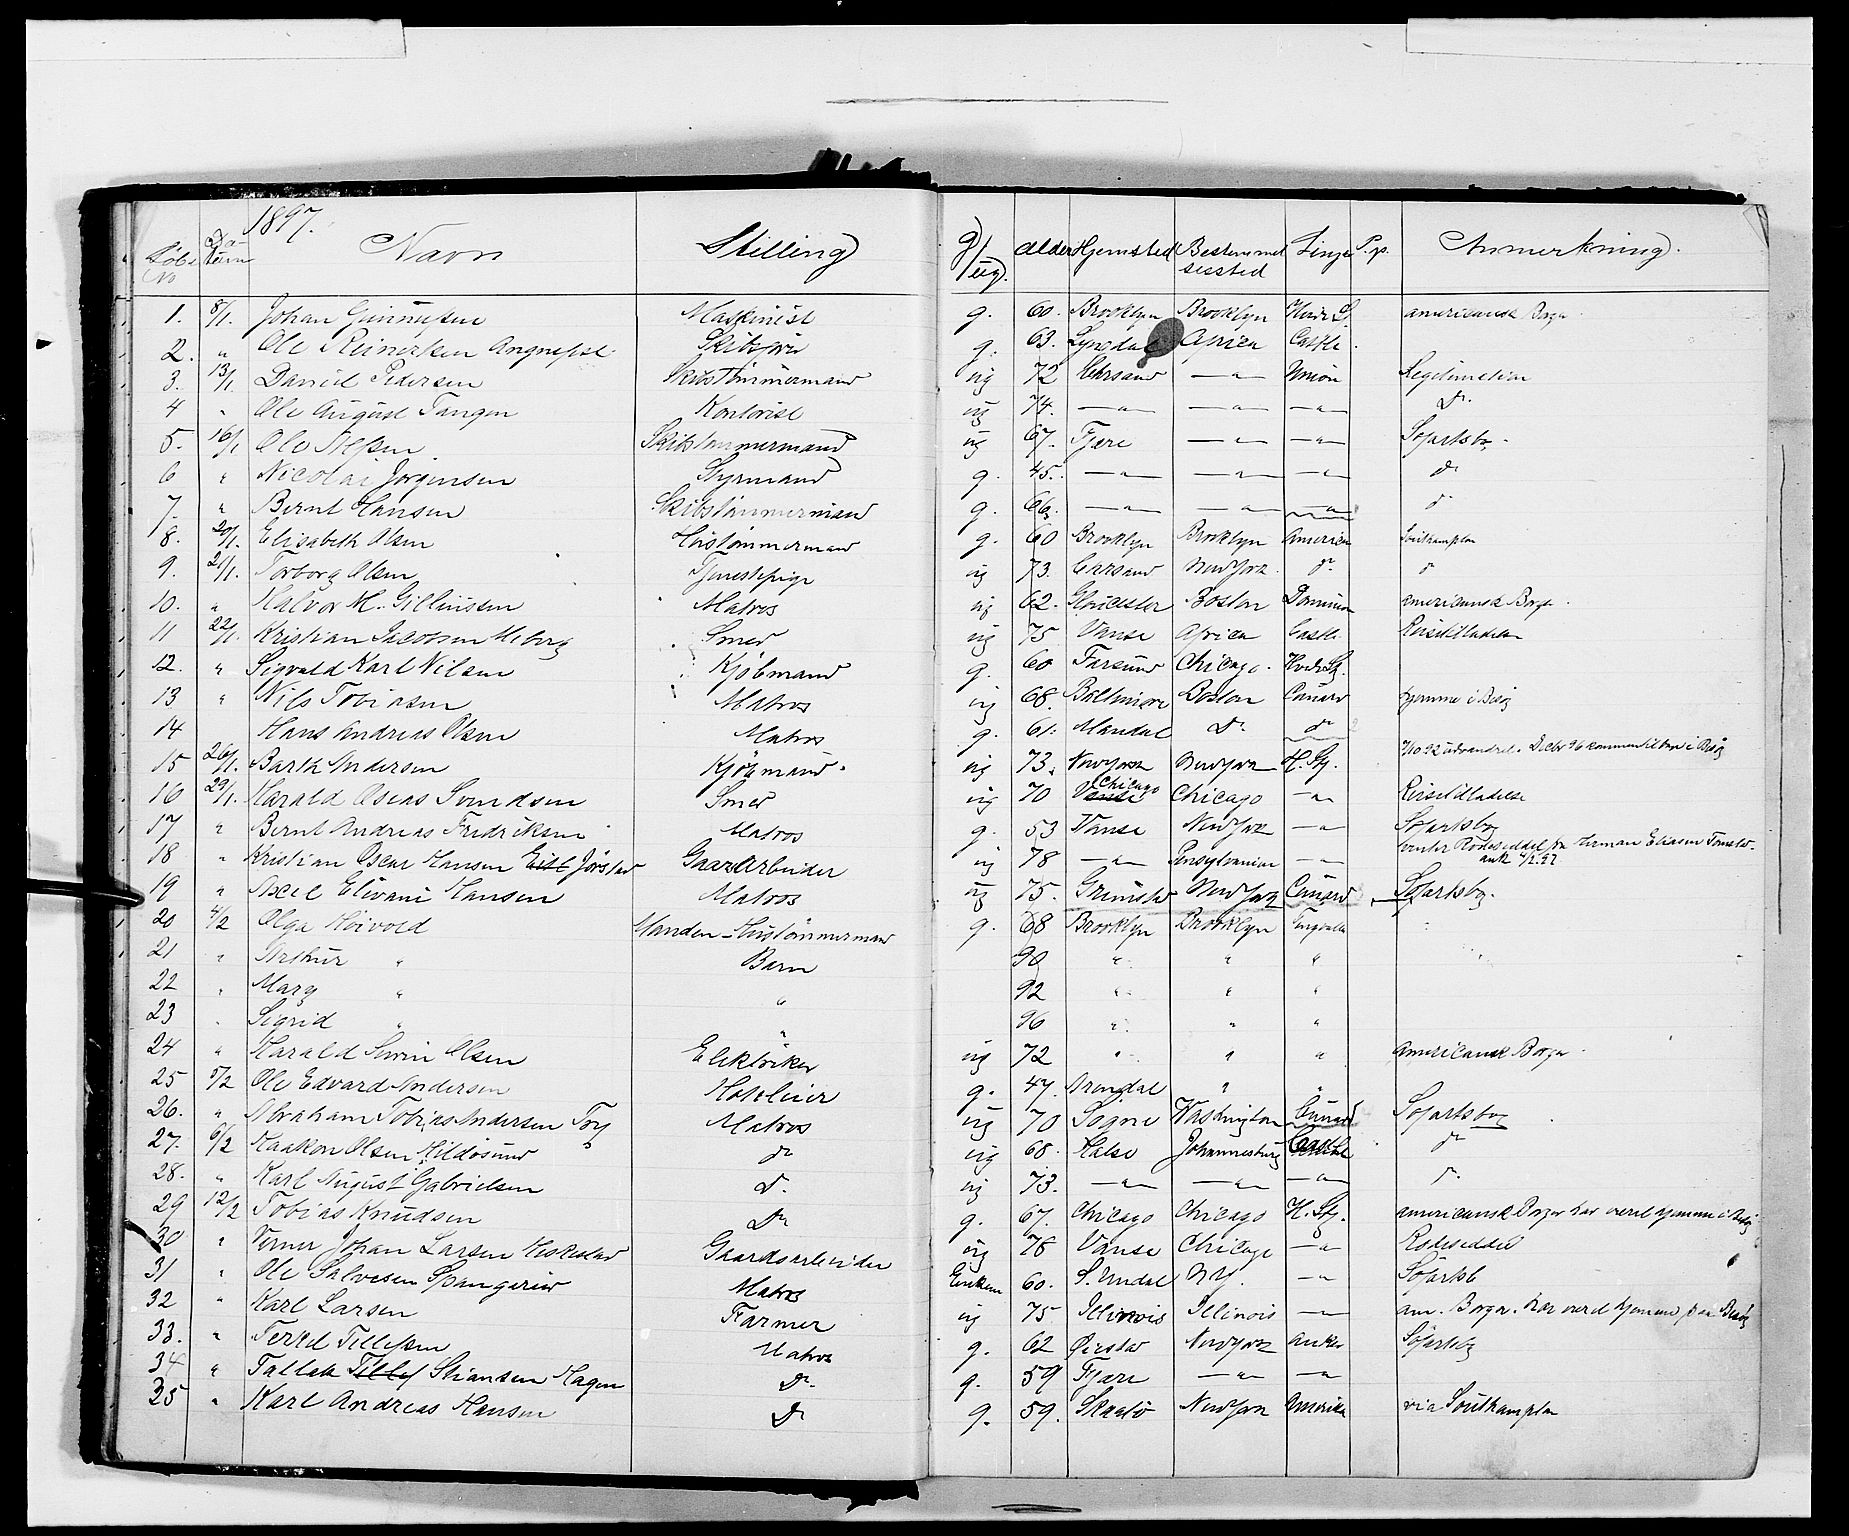 1897.
Løbe No Datum Navn Stilling g/ug. Alder Hjemsted Bestemmelsessted Linje P.p. Anmerkning.
1. 8/1. Johan Gunnufsen Maskinist g. 60. Brooklyn Brooklyn americansk Borger
2. " Ole Reinertsen Angnefsl g. 63. Lyngdal Africa Castle
3. 13/1 David Pedersen Skibstømmermand ug 72 Chrsand —"— Union Legitimation
4 " Ole August Tangen Kontorist ug 74. —"— —"— —"— Do.
5. 16/1 Ole Skibstømmermand ug 67. Fjære —"— —"— Søfartsbog
6 " Nicolai Jørgensen Styrmand g. 45. —"— —"— —"— do
7. " Bernt Hansen Skibstømmermand g. 66. —"— —"— —"— do
8. 20/1. Elisabeth Olsen Hustømmermand g. 60 Brooklyn Brooklyn American Southampton
9. 21/1. Torborg Olsen Tjenestepige ug 73. Carsand New York do do
10. " Halvor M. Gillufsen Matros ug 62. Gloucester Boston Dominion americansk Borger
11 22/1 Kristian Jacobsen Meberg Smed ug 75. Vanse Africa Castle Reisetilladelse
12. " Sigvald Karl Nilsen Kjøbmand g. 60 Farsund Chicago.
13 " Nils Tobiasen Matros ug 68. Baltimore Boston Cunard hjemme i Besøg
14 Hans Andreas Olsen Matros g. 61. Mandal Do do
15 26/1. Barth Andersen Kjøbmand ug 73. New York New York H. Stg. No 92 udvandret. Decbr 96 kommen tilbage i Besøg
16 29/1. Harald Oseas Svendsen Smed ug 70 Vanse Chicago Chicago —"— Reisetilladelse
17 " Bernt Andreas Fredriksen Matros g. 53 Vanse New York —"— Søfartsbog
18 " Kristian Oscar Hansen Jørstad Gaardarbeider ug 78 —"— Pensylvanien —"— venter Rodeseddel fra Herman Eliasen
19 " Axel Elivani Hansen Matros ug 75. Grimstad New York Cunard Søfartsbog.
20 4/2 Olga Høivold Manden – Hustømmermand g. 68 Brooklyn Brooklyn Tingvalla
21 " Arthur " Barn 90 " " "
22 " Mary " " 92 " " "
23 " Sigrid " " 96 " " "
24 " Harald Severin Olsen Elektriker ug 72 " " " americansk Borger
25 5/2 Ole Edvard Andersen Hotelier g. 47. Arendal " "
26. " Abraham Tobias Andersen Try Matros ug 70 Søgne Washington Cunard Søfartsbog
27. 6/2 Haakon Olsen Hildøsund do ug 68. Halse Johannesburg Castle do
28. " Karl August Gabrielsen d. ug 73. —"— —"— —"— do
29 12/2 Tobias Knudsen Do g. 67. Chicago Chicago H. Stg. americansk Borger har været hjemme i Besøg
30 " Verner Johan Larsen Heskestad Gaardsarbeider ug 78 Vanse Chicago —"— Rodeseddel
31 " Ole Salvesen Spangereid Matros Enkem 60. S. Undal N.Y. —"— Søfartsb
32 " Karl Larsen Farmer ug 75. Illinois Illinois —"— am. Borger. har været hjemme paa Besøg
33. " Terkel Tellefsen Matros g. 62 Øiestad New York Anker Søfartsbog
34 " Tallak Stiansen Hagen Do. g. 59 Fjære —"— —"—
35 " Karl Andreas Hansen Do g. 59. Skaatø New York Amerika via Southampton